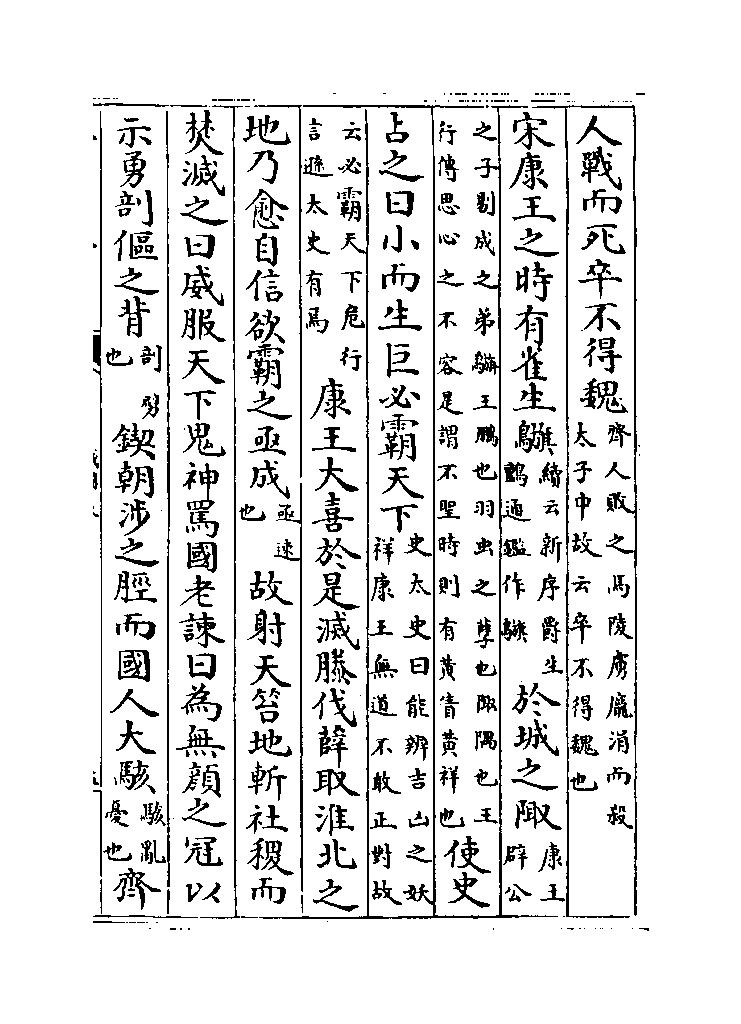 人戰而死卒不得魏齊人敗之馬陵虜龐涓而殺太子申故云卒不得魏也
宋康王之時有雀生續云新序爵生鸇通鑑作於城之陬康王辟公
之子剔成之弟王鵬也羽虫之孽也陬隅也王行傳思心之不容是謂不聖時則有黃眚黃祥也使史
占之曰小而生巨必霸天下史太史曰能辨吉凶之妖祥康王無道不敢正對故
云必霸天下危行言遜太史有焉康王大喜於是滅滕伐薛取淮北之
地乃愈自信欲霸之亟成亟速也故射天笞地斬社稷而
焚滅之曰威服天下鬼神罵國老諫曰為無顏之冠以
示勇剖傴之背剖劈也鍥朝涉之脛而國人大駭駭亂憂也齊